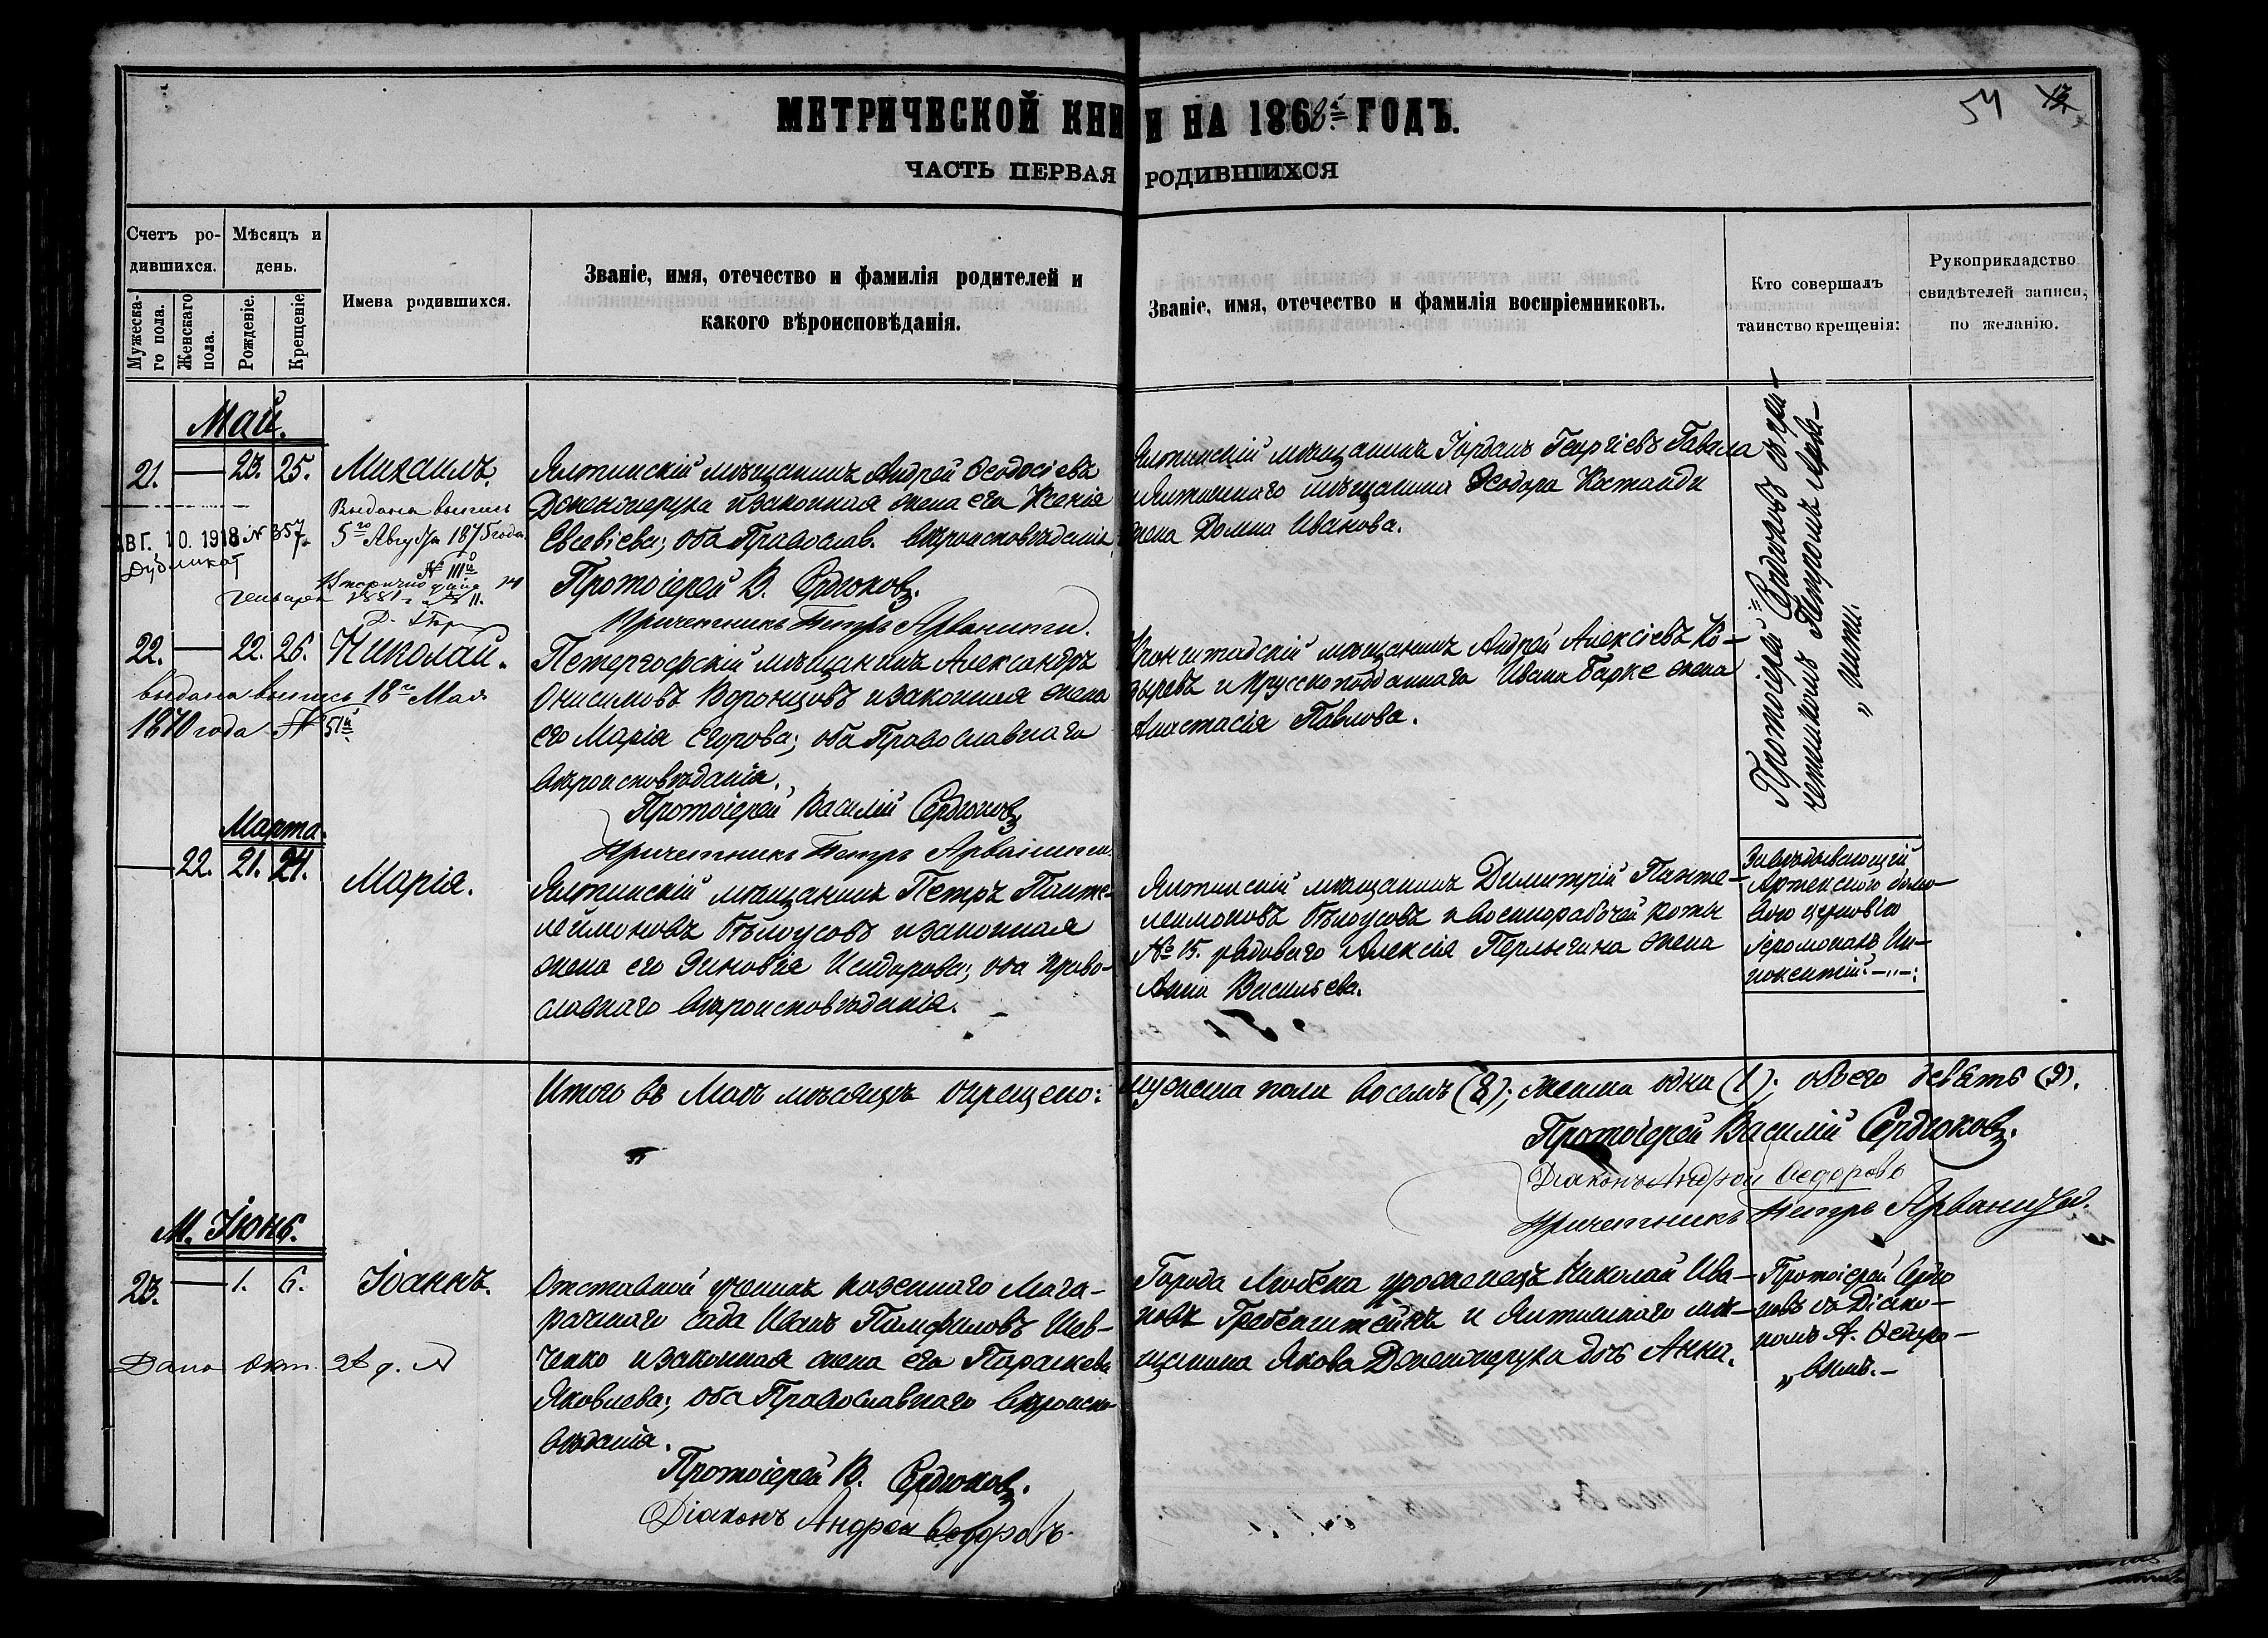 МЕТРИЧЕСКОЙ КНИ И НА 1868й ГОДЪ.
54
ЧАСТЬ ПЕРВАЯ РОДИВШИХСЯ
Счетъ ро-
дившихся.
Мужеска-
го пола.
Женскаго
пола.
Мѣсяцъ и
день.
Рожденіе.
Крещеніе
Имена родившихся.
Званіе, имя, отечество и фамилія родителей и
какого вѣроисповѣданія.
Званіе, имя, отечество и фамилія воспріемниковъ.
Кто совершалъ
таинство крещенія:
Рукоприкладство
свидѣтелей записи,
по желанію.
Май.
21. — 23. 25. Михаилъ.
Выдана выпись
5го Августа 1875 года
АВГ. 10. 1918 № 357
Дубликат
Вторично дана 14
Генваря 1881 г. № 11.
Ялтинскій мѣщанинъ Андрей Ѳеодосіевъ
Дженджеруха и законная жена его Ксенія
Евсевіева; оба Православ. вѣроисповѣданія
Протоіерей В. Сердюковъ.
Причетникъ Петръ Арванити.
Ялтинскій мѣщанинъ Іорданъ Георгіевъ Гавала
и Ялтинскаго мѣщанина Ѳеодора Костанди
жена Домна Иванова.
Протоіерей Сердюковъ съ при-
четникомъ Петромъ Арва-
„ нити.
22. — 22. 26. Николай.
выдана выпись 18го Мая
1870 года № 51й
Петергофскій мѣщанинъ Александръ
Онисимовъ Воронцовъ и законная жена
его Марія Егорова; оба Православнаго
вѣроисповѣданія.
Протоіерей Василій Сердюковъ
Причетникъ Петръ Арванити
Кронштадскій мѣщанинъ Андрей Алексіевъ Ко-
зыревъ и Прусско подданнаго Ивана Барке жена
Анастасія Павлова.
Марта.
— 22. 21. 24. Марія.
Ялтинскій мѣщанинъ Петръ Панте-
леймоновъ Бѣлоусовъ и законная
жена его Зиновія Исидорова; оба право-
славнаго вѣроисповѣданія.
Ялтинскій мѣщанинъ Димитрій Панте-
леимоновъ Бѣлоусовъ и военнорабочей роты
№ 15. рядоваго Алексія Перлыгина жена
Анна Васильева.
Завѣдывающій
Артекскою
церковію
Іеромонахъ Ин-
нокентій. —„—:
Итого въ Маѣ мѣсяцѣ окрещено: мужеска пола восемь (8); женска одна (1); обоего девять (9).
Протоіерей Василій Сердюковъ.
Діаконъ Андрей Ѳедоровъ
Причетникъ Петръ Арванити.
М. Іюнь.
23. — 1. 6. Іоаннъ.
Дано окт. 28 д. №
Отставной ученикъ казеннаго Мага-
рачскаго сада Иванъ Памфиловъ Шев-
ченко и законная жена его Параскева
Яковлева; оба Православнаго вѣроиспо-
вѣданія.
Протоіерей В. Сердюковъ.
Діаконъ Андрей Ѳедоровъ.
Города Любека уроженецъ Николай Ива-
новъ Гребенштейнъ и Ялтинскаго мѣ-
щанина Якова Дженджеруха дочь Анна.
Протоіерей Сердю
ковъ съ Діако-
номъ А. Ѳедоро-
„ вымъ.-